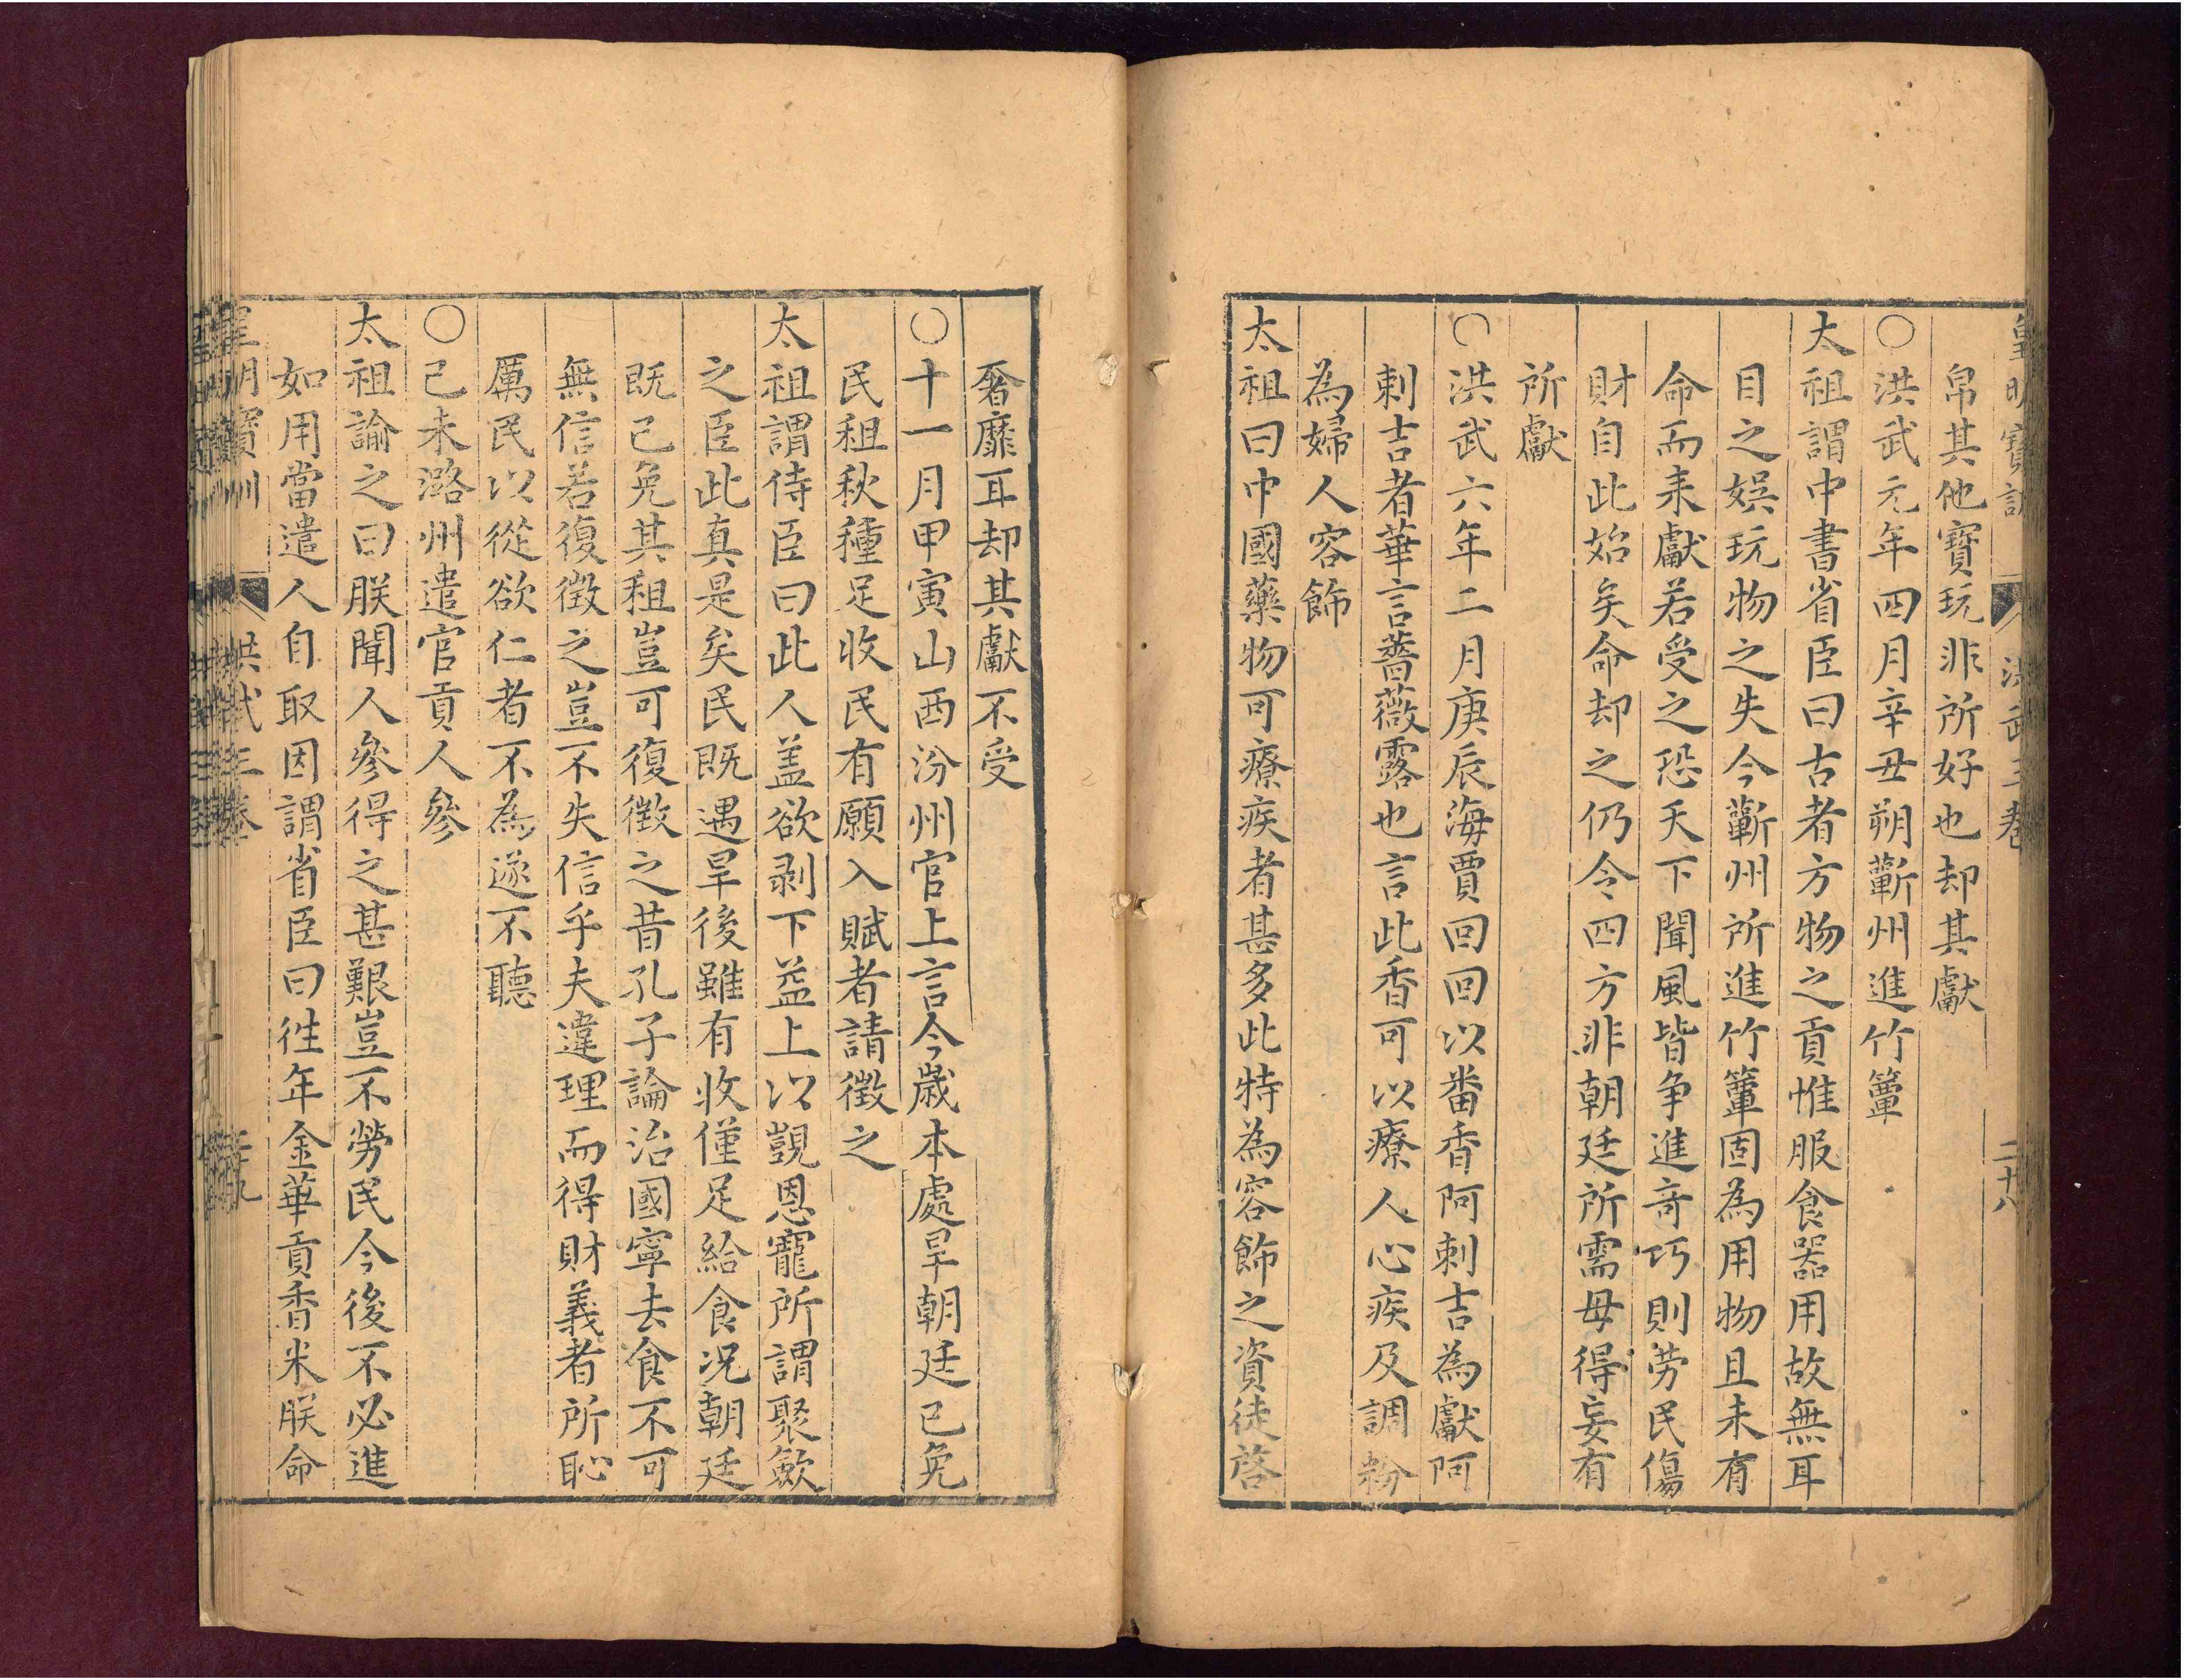 皇明寶訓 洪武三卷 二十八
帛其他寶玩非所好也却其獻
○洪武元年四月辛丑朔蘄州進竹簟
太祖謂中書省臣曰古者方物之貢惟服食器用故無耳
目之娛玩物之失今蘄州所進竹簟固為用物且未有
命而来獻若受之恐天下聞風皆争進竒巧則劳民傷
財自此始矣命却之仍令四方非朝廷所需毋得妄有
所獻
○洪武六年二月庚辰海賈回回以番香阿剌吉為獻阿
剌吉者華言薔薇露也言此香可以療人心疾及調粉
為婦人容飾
太祖曰中國藥物可療疾者甚多此特為容飾之資徒啓
奢靡耳却其獻不受
○十一月甲寅山西汾州官上言今歲本處旱朝廷已免
民租秋種足收民有願入賦者請徵之
太祖謂侍臣曰此人盖欲剥下益上以覬恩寵所謂聚斂
之臣此真是矣民既遇旱後雖有收僅足給食况朝廷
既已免其租豈可復徴之昔孔子論治國寧去食不可
無信若復徴之豈不失信乎夫違理而得財義者所恥
厲民以從欲仁者不為遂不聽
○己未潞州遣官貢人參
太祖諭之曰朕聞人參得之甚艱豈不勞民今後不必進
如用當遣人自取因謂省臣曰徃年金華貢香米朕命
皇明寶訓 洪武三卷 二十九